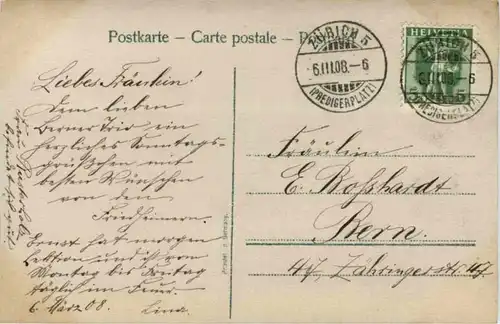 Postkarte - Carte postale -
ZÜRICH 5
6.III.08. - 6
(PREDIGERPLATZ)
HELVETIA
ZÜRICH 5
6.III.08. - 6
(PREDIGERPLATZ)
Liebes Fräulein!
Dem lieben
Berner Trio ein
herzliches Sonntags-
grüsschen mit
besten Wünschen
von den
Friedheimern.
Ernst hat morgen
Lektion und ich von
Montag bis Freitag
täglich im
6. März 08. Lina.
Fräulein
E. Bosshardt
Bern.
47, Zähringerstr. 47.
Printed in Germany.